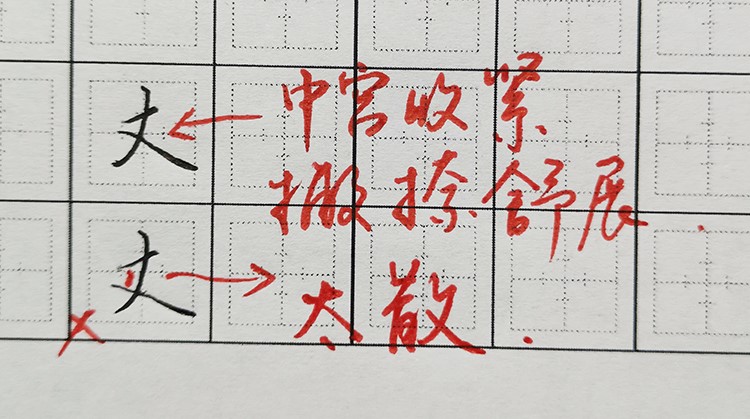 丈 中宫收紧
撇捺舒展.
丈 太散.
x